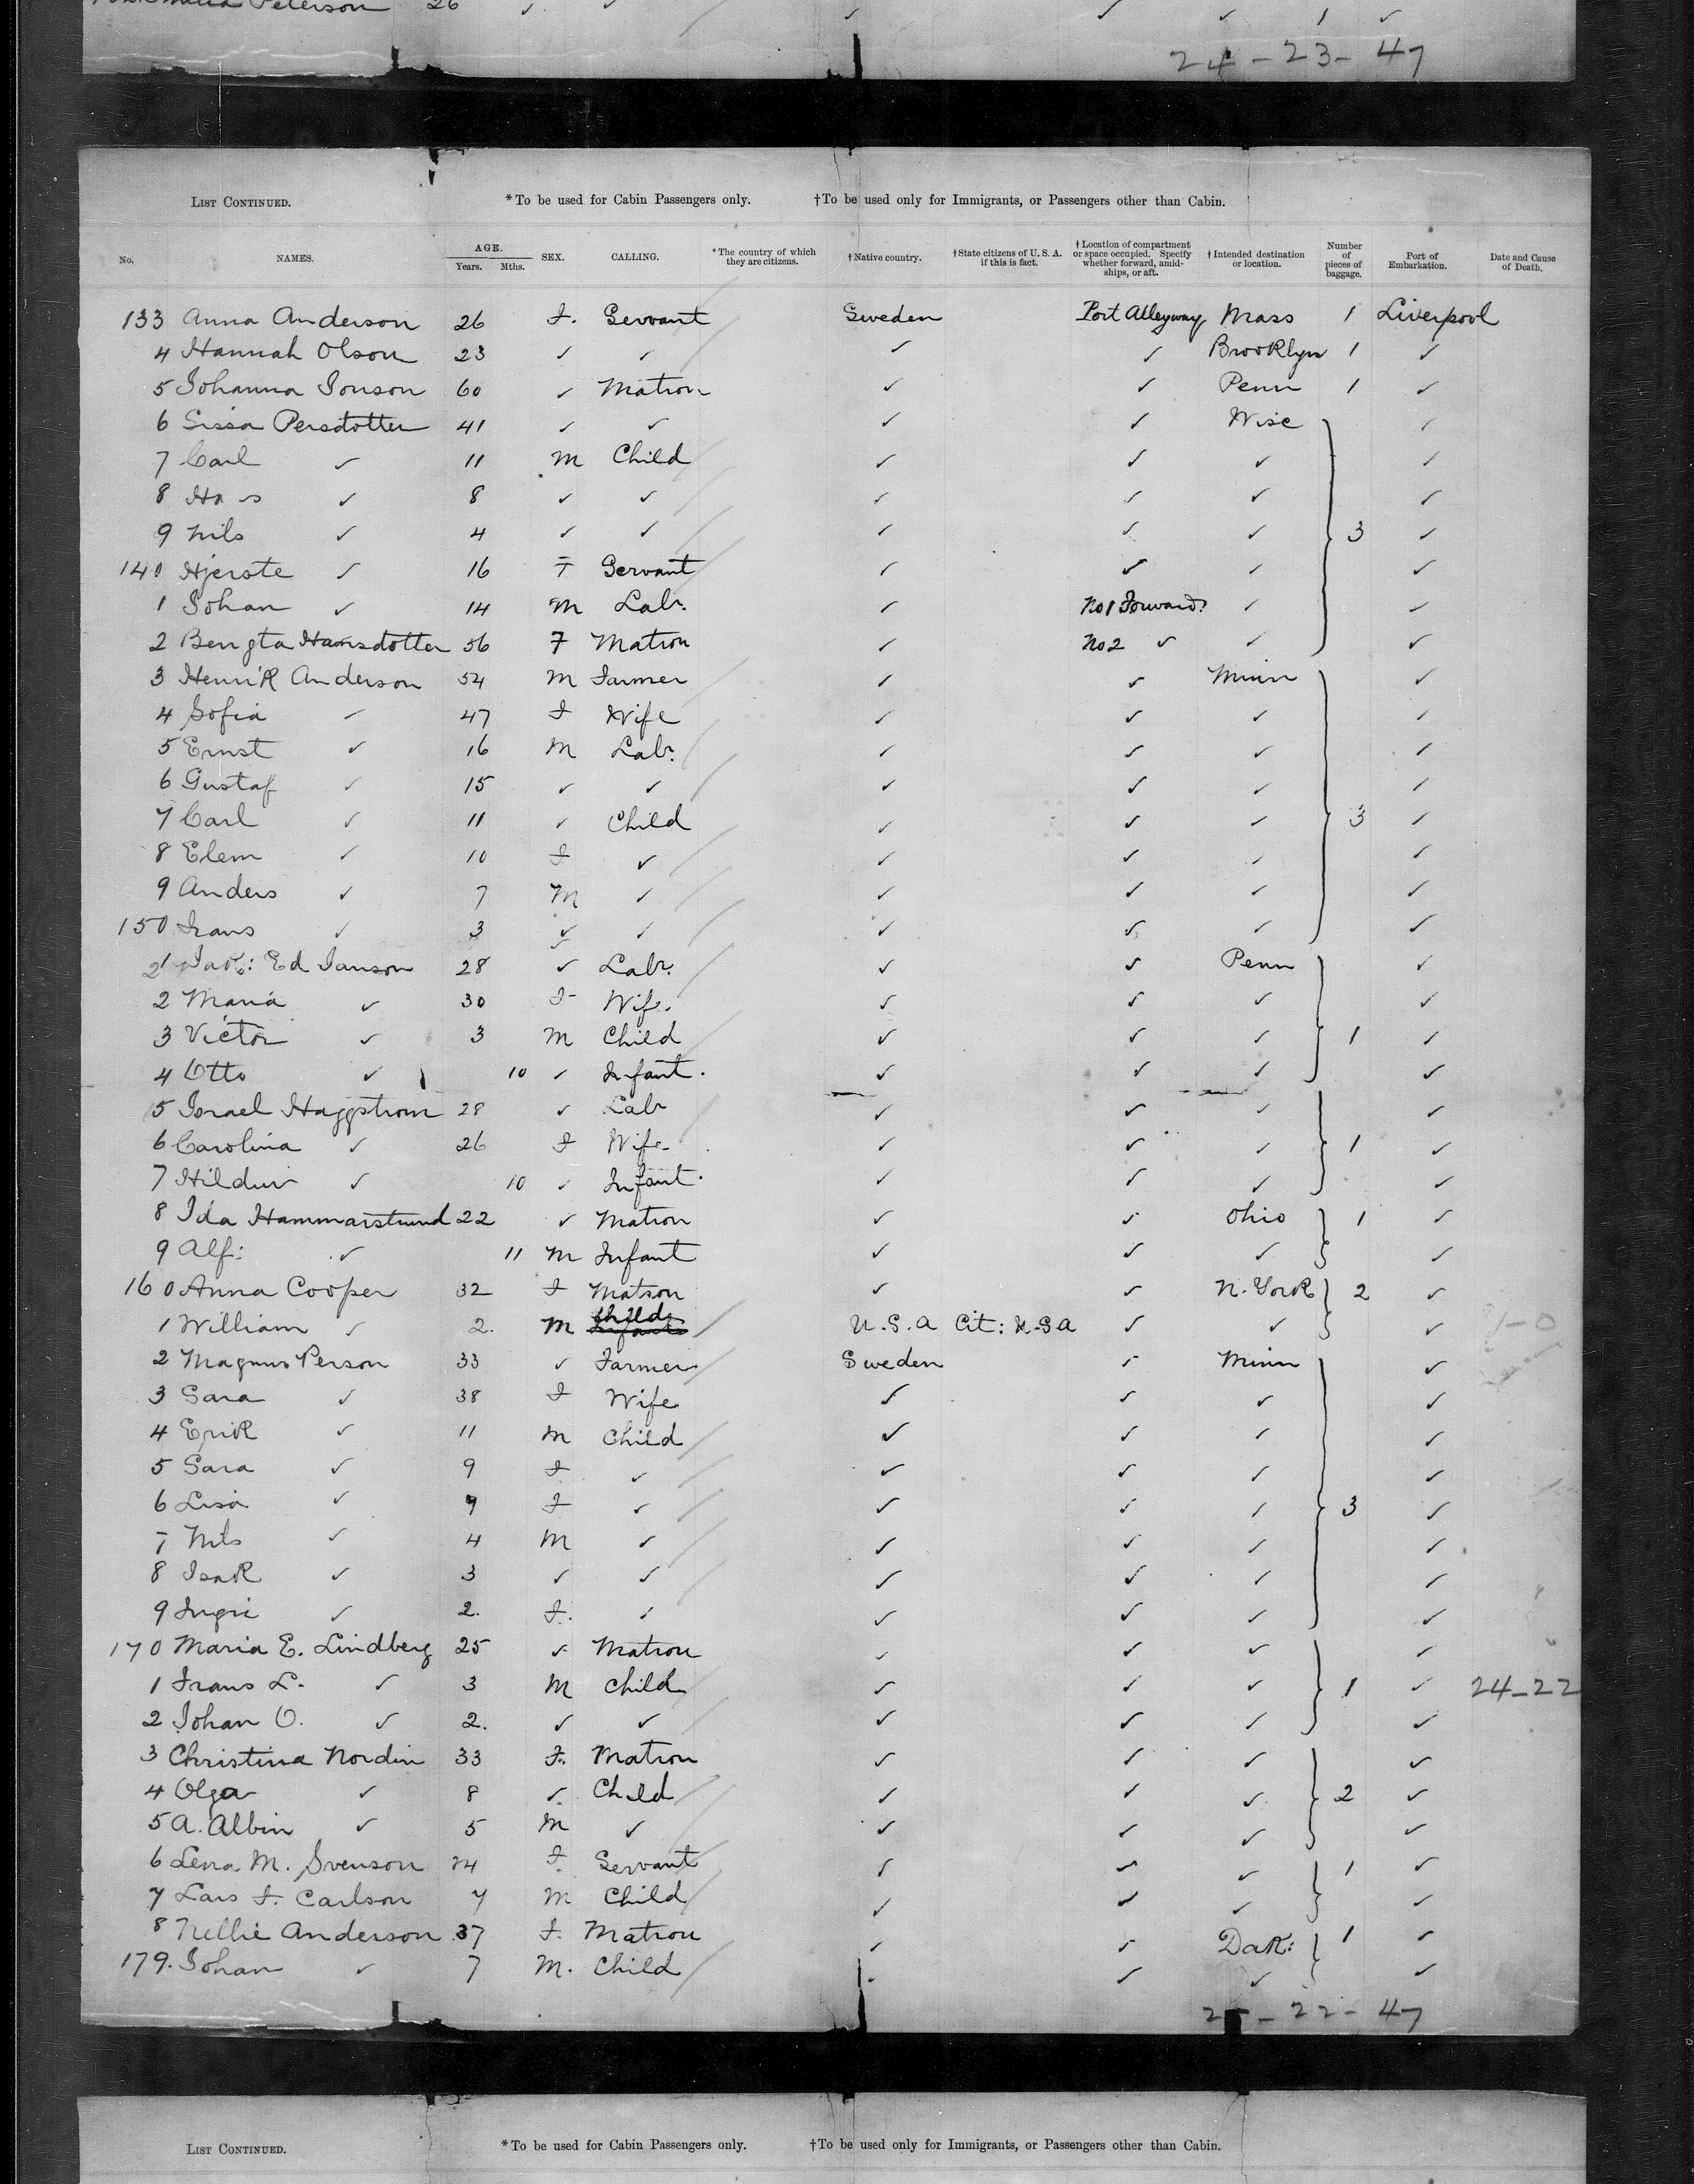 Peterson 26 ✓ ✓ ✓ ✓ ✓ 1 ✓
24 - 23 - 47
LIST CONTINUED. *To be used for Cabin Passengers only. †To be used only for Immigrants, or Passengers other than Cabin.
No. NAMES. AGE. Years. Mths. SEX. CALLING. *The country of which they are citizens. †Native country. †State citizens of U. S. A. if this is fact. †Location of compartment or space occupied. Specify whether forward, amidships, or aft. †Intended destination or location. Number of pieces of baggage. Port of Embarkation. Date and Cause of Death.
133 Anna Anderson 26 F. Servant Sweden Port Alleyway Mass 1 Liverpool
4 Hannah Olson 23 ✓ ✓ ✓ ✓ Brooklyn 1 ✓
5 Johanna Jonson 60 ✓ Matron ✓ ✓ Penn 1 ✓
6 Sissa Persdotter 41 ✓ ✓ ✓ ✓ Wisc ✓
7 Carl ✓ 11 M Child ✓ ✓ ✓ ✓
8 Ha s ✓ 8 ✓ ✓ ✓ ✓ ✓ ✓
9 Nils ✓ 4 ✓ ✓ ✓ ✓ ✓ 3 ✓
140 Hjerste ✓ 16 F Servant ✓ ✓ ✓ ✓
1 Johan ✓ 14 M Labr. ✓ No 1 Forward ✓ ✓
2 Bengta Hansdotter 56 F Matron ✓ No 2 ✓ ✓ ✓
3 Henrik Anderson 54 M Farmer ✓ ✓ Minn ✓
4 Sofia ✓ 47 F Wife ✓ ✓ ✓ ✓
5 Ernst ✓ 16 M Labr. ✓ ✓ ✓ ✓
6 Gustaf ✓ 15 ✓ ✓ ✓ ✓ ✓ ✓
7 Carl ✓ 11 ✓ Child ✓ ✓ ✓ 3 ✓
8 Elem ✓ 10 F ✓ ✓ ✓ ✓ ✓
9 Anders ✓ 7 M ✓ ✓ ✓ ✓ ✓
150 Frans ✓ 3 ✓ ✓ ✓ ✓ ✓ ✓
1 Jak: Ed Janson 28 ✓ Labr. ✓ ✓ Penn ✓
2 Maria ✓ 30 F Wife ✓ ✓ ✓ ✓
3 Victor ✓ 3 M Child ✓ ✓ ✓ 1 ✓
4 Otto ✓ 10 ✓ Infant. ✓ ✓ ✓ ✓
5 Israel Haggstrom 28 ✓ Labr ✓ ✓ ✓ ✓
6 Carolina ✓ 26 F Wife ✓ ✓ ✓ 1 ✓
7 Hildur ✓ 10 ✓ Infant. ✓ ✓ ✓ ✓
8 Ida Hammarstrund 22 ✓ Matron ✓ ✓ Ohio 1 ✓
9 Alf: ✓ 11 M Infant ✓ ✓ ✓ ✓
160 Anna Cooper 32 F Matron ✓ ✓ N. York 2 ✓
1 William ✓ 2. M Child Infant U.S.A Cit: U.S.A ✓ ✓ ✓ 1-0
2 Magnus Person 33 ✓ Farmer Sweden ✓ Minn ✓
3 Sara ✓ 38 F Wife ✓ ✓ ✓ ✓
4 Erik ✓ 11 M Child ✓ ✓ ✓ ✓
5 Sara ✓ 9 F ✓ ✓ ✓ ✓ ✓
6 Lisa ✓ 9 F ✓ ✓ ✓ ✓ 3 ✓
7 Nils ✓ 4 M ✓ ✓ ✓ ✓ ✓
8 Isak ✓ 3 ✓ ✓ ✓ ✓ ✓ ✓
9 Ingri ✓ 2. F. ✓ ✓ ✓ ✓ ✓
170 Maria E. Lindberg 25 ✓ Matron ✓ ✓ ✓ ✓
1 Frans L. ✓ 3 M Child ✓ ✓ ✓ 1 ✓ 24-22
2 Johan O. ✓ 2. ✓ ✓ ✓ ✓ ✓ ✓
3 Christina Nordin 33 F. Matron ✓ ✓ ✓ ✓
4 Olga ✓ 8 ✓ Child ✓ ✓ ✓ 2 ✓
5 A. Albin ✓ 5 M ✓ ✓ ✓ ✓ ✓
6 Lena M. Svenson 24 F Servant ✓ ✓ ✓ 1 ✓
7 Lars F. Carlson 7 M Child ✓ ✓ ✓ ✓
8 Nellie Anderson 37 F. Matron ✓ ✓ Dak: 1 ✓
179. Johan ✓ 7 M. Child ✓ ✓ ✓ ✓
25 - 22 - 47
LIST CONTINUED. *To be used for Cabin Passengers only. †To be used only for Immigrants, or Passengers other than Cabin.